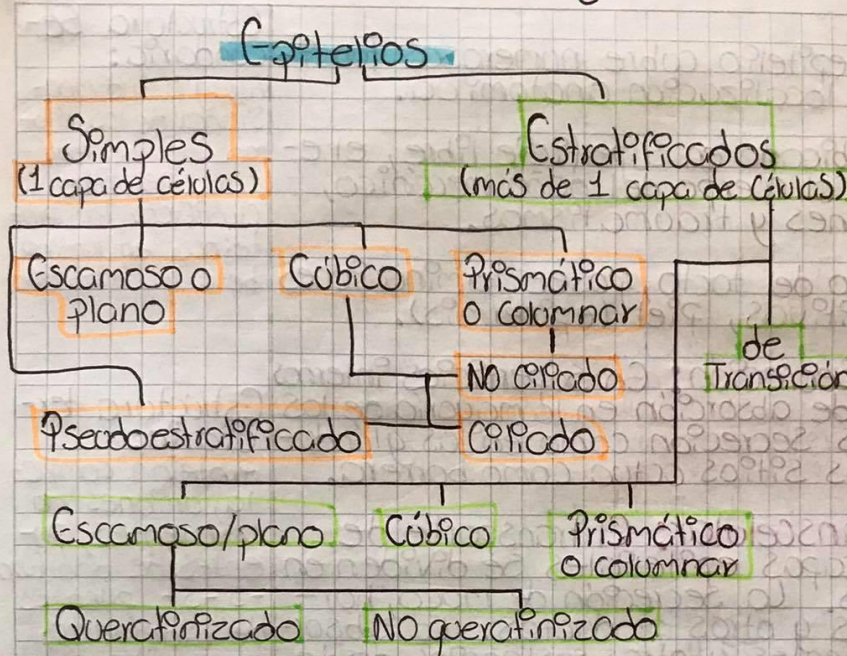 Epitelios
Simples
(1 capa de células)
Estratificados
(más de 1 capa de Células)
Escamoso o
plano
Cúbico
Prismático
o columnar
de
Transición
NO ciliado
Pseudoestratificado
Ciliado
Escamoso/plano
Cúbico
Prismático
o columnar
Queratinizado
NO queratinizado